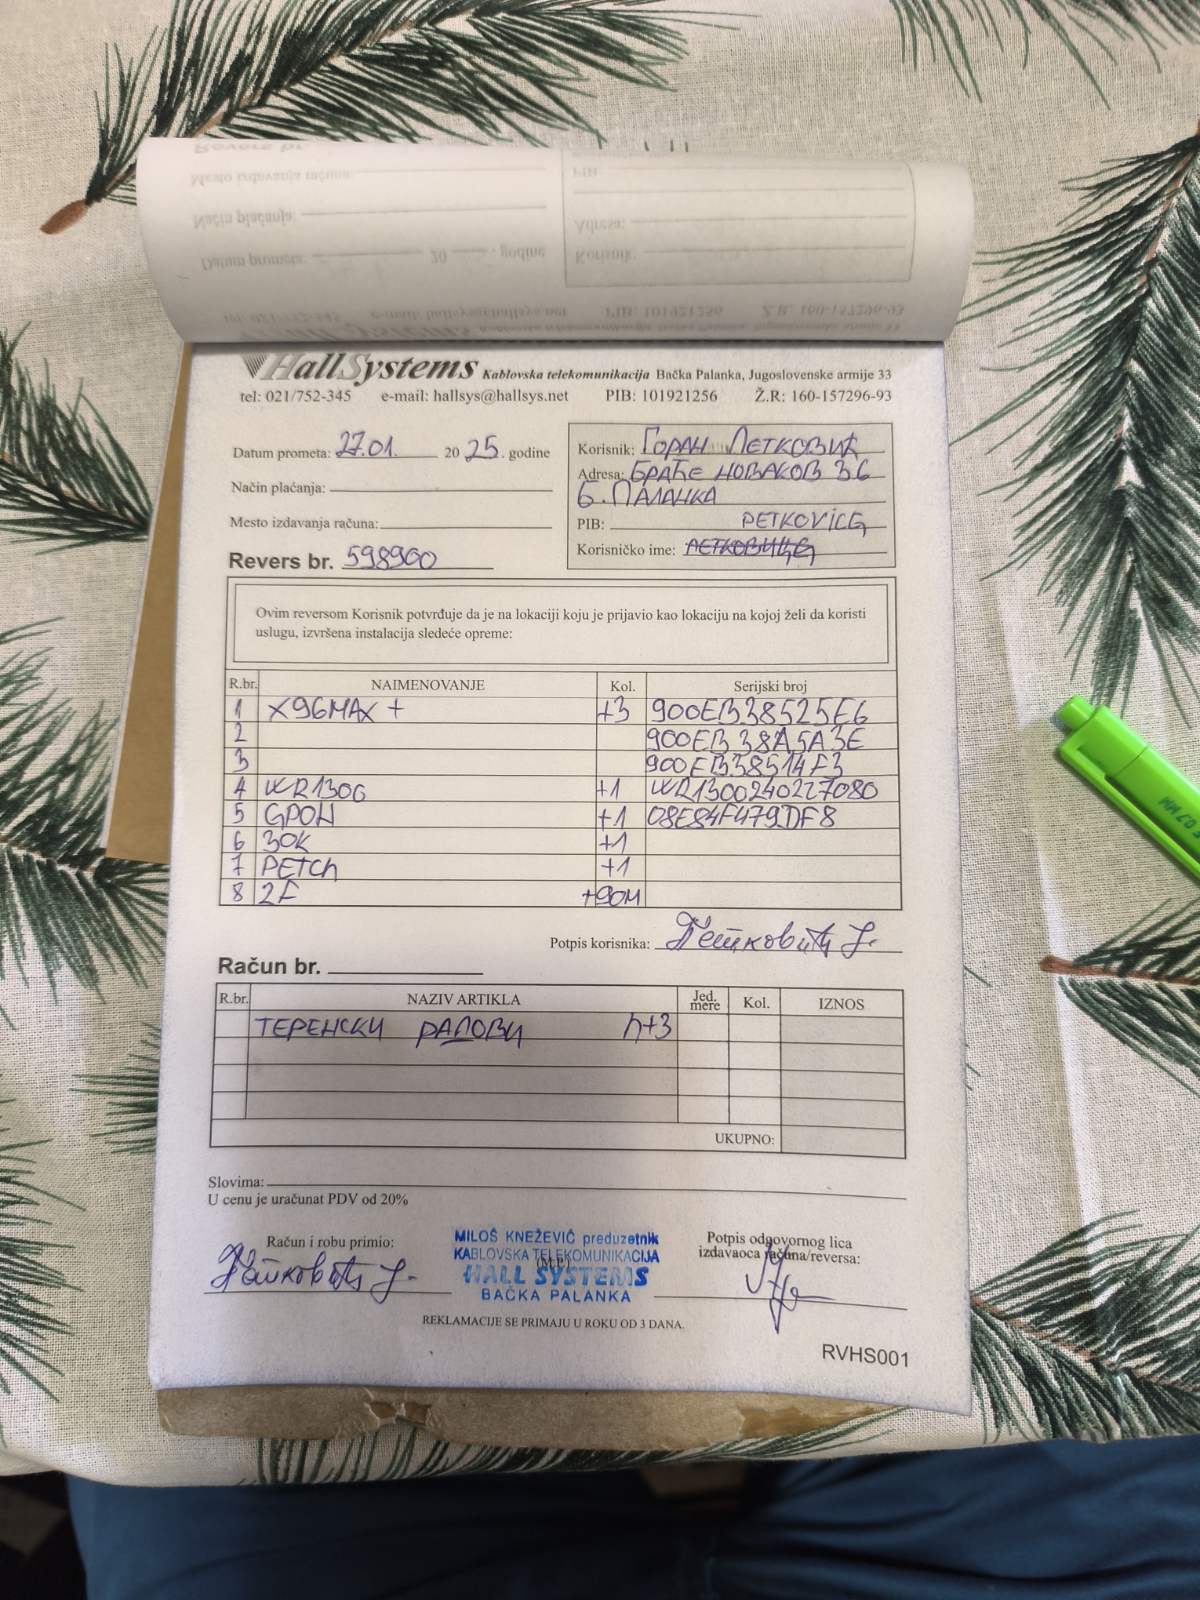 HallSystems Kablovska telekomunikacija Bačka Palanka, Jugoslovenske armije 33
tel: 021/752-345 e-mail: hallsys@hallsys.net PIB: 101921256 Ž.R: 160-157296-93
Datum prometa: 27.01. 2025. godine
Način plaćanja:
Mesto izdavanja računa:
Revers br. 598900
Korisnik: ГОРАН ПЕТКОВИЋ
Adresa: БРАЋЕ НОВАКОВ 36
Б. ПАЛАНКА
PIB: PETKOVICG
Korisničko ime:
Ovim reversom Korisnik potvrđuje da je na lokaciji koju je prijavio kao lokaciju na kojoj želi da koristi
uslugu, izvršena instalacija sledeće opreme:
R.br. NAIMENOVANJE Kol. Serijski broj
1 X96MAX+ +3 900EB38525E6
2 900EB38A5A3E
3 900EB38514F3
4 WR1300 +1 WR1300240227080
5 GPON +1 08E84F479DF8
6 30K +1
7 PETCH +1
8 2F +90M
Potpis korisnika: Петковић Г.
Račun br.
R.br. NAZIV ARTIKLA Jed. mere Kol. IZNOS
ТЕРЕНСКИ РАДОВИ h+3
UKUPNO:
Slovima:
U cenu je uračunat PDV od 20%
Račun i robu primio:
Петковић Г.
MILOŠ KNEŽEVIĆ preduzetnik
KABLOVSKA TELEKOMUNIKACIJA
(M.P.)
HALL SYSTEMS
BAČKA PALANKA
Potpis odgovornog lica
izdavaoca računa/reversa:
REKLAMACIJE SE PRIMAJU U ROKU OD 3 DANA.
RVHS001